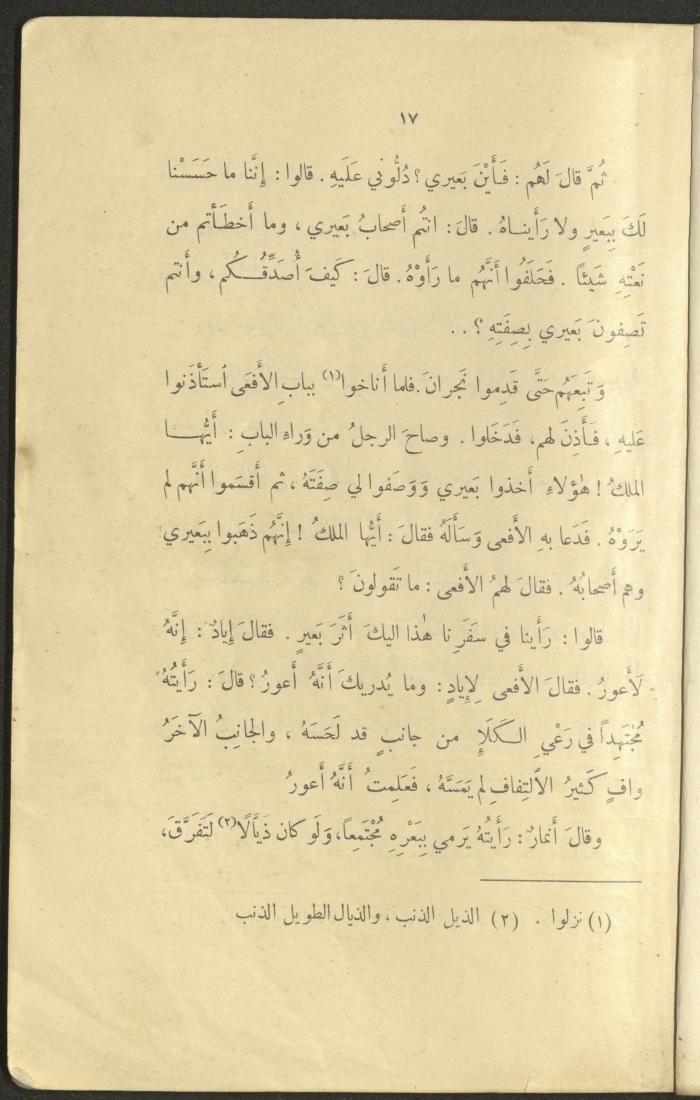 ١٧
ثُمَّ قالَ لَهُم : فَأَيْنَ بَعيري ؟ دُلُّوني عَلَيهِ . قالوا : إِنَّنا ما حَسَسْنا
لَكَ بِبَعيرٍ ولا رَأَيناهُ . قالَ : انتُم أَصحابُ بَعيري ، وما أَخطَأتم من
نَعْتِهِ شَيئاً . فَحَلَفُوا أَنَّهُم ما رَأَوْهُ . قالَ : كَيفَ أُصَدِّقُكُم ، وأَنتم
تَصِفونَ بَعيري بِصِفَتِهِ ؟ . .
وَتَبِعَهُم حَتَّى قَدِموا نَجرانَ . فلما أَناخوا (١) ببابِ الأَفعَى ٱستَأذَنوا
عَليهِ ، فَأَذِنَ لهم ، فَدَخَلوا . وصاحَ الرجلُ من وَراءِ البابِ : أَيُّها
الملكُ ! هٰؤلاءِ أَخذوا بَعيري وَوَصَفوا لي صِفَتَهُ ، ثم أَقسَموا أَنَّهم لم
يَرَوْهُ . فَدَعا بهِ الأَفعى وَسَأَلَهُ فقالَ : أَيُّها الملكُ ! إِنَّهُم ذَهَبوا بِبَعيري
وهم أَصحابُهُ . فقالَ لهمُ الأَفعى : ما تَقولونَ ؟
قالوا : رَأَينا في سَفَرِنا هٰذا اليكَ أَثَرَ بَعيرٍ . فقالَ إِيادٌ : إِنَّهُ
لَأَعورُ . فقالَ الأَفعى لِإِيادٍ : وما يُدريكَ أَنَّهُ أَعورُ ؟ قالَ : رَأَيتُهُ
مُجْتَهِداً في رَعْيِ الكَلَإِ من جانبٍ قد لَحَسَهُ ، والجانِبُ الآخَرُ
وافٍ كَثيرُ الٱلتِفافِ لم يَمَسَّهُ ، فَعَلِمتُ أَنَّهُ أَعورُ
وقالَ أَنمارٌ : رَأَيتُهُ يَرمي بِبَعْرِهِ مُجْتَمِعاً، وَلَو كان ذَيَّالًا (٢) لَتَفَرَّقَ،
(١) نزلوا . (٢) الذيل الذنب ، والذيال الطويل الذنب